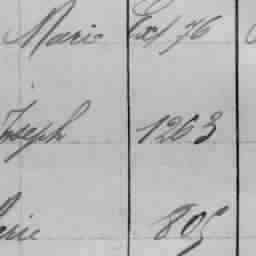 Marie Ext 76
Joseph 1263
Marie 805